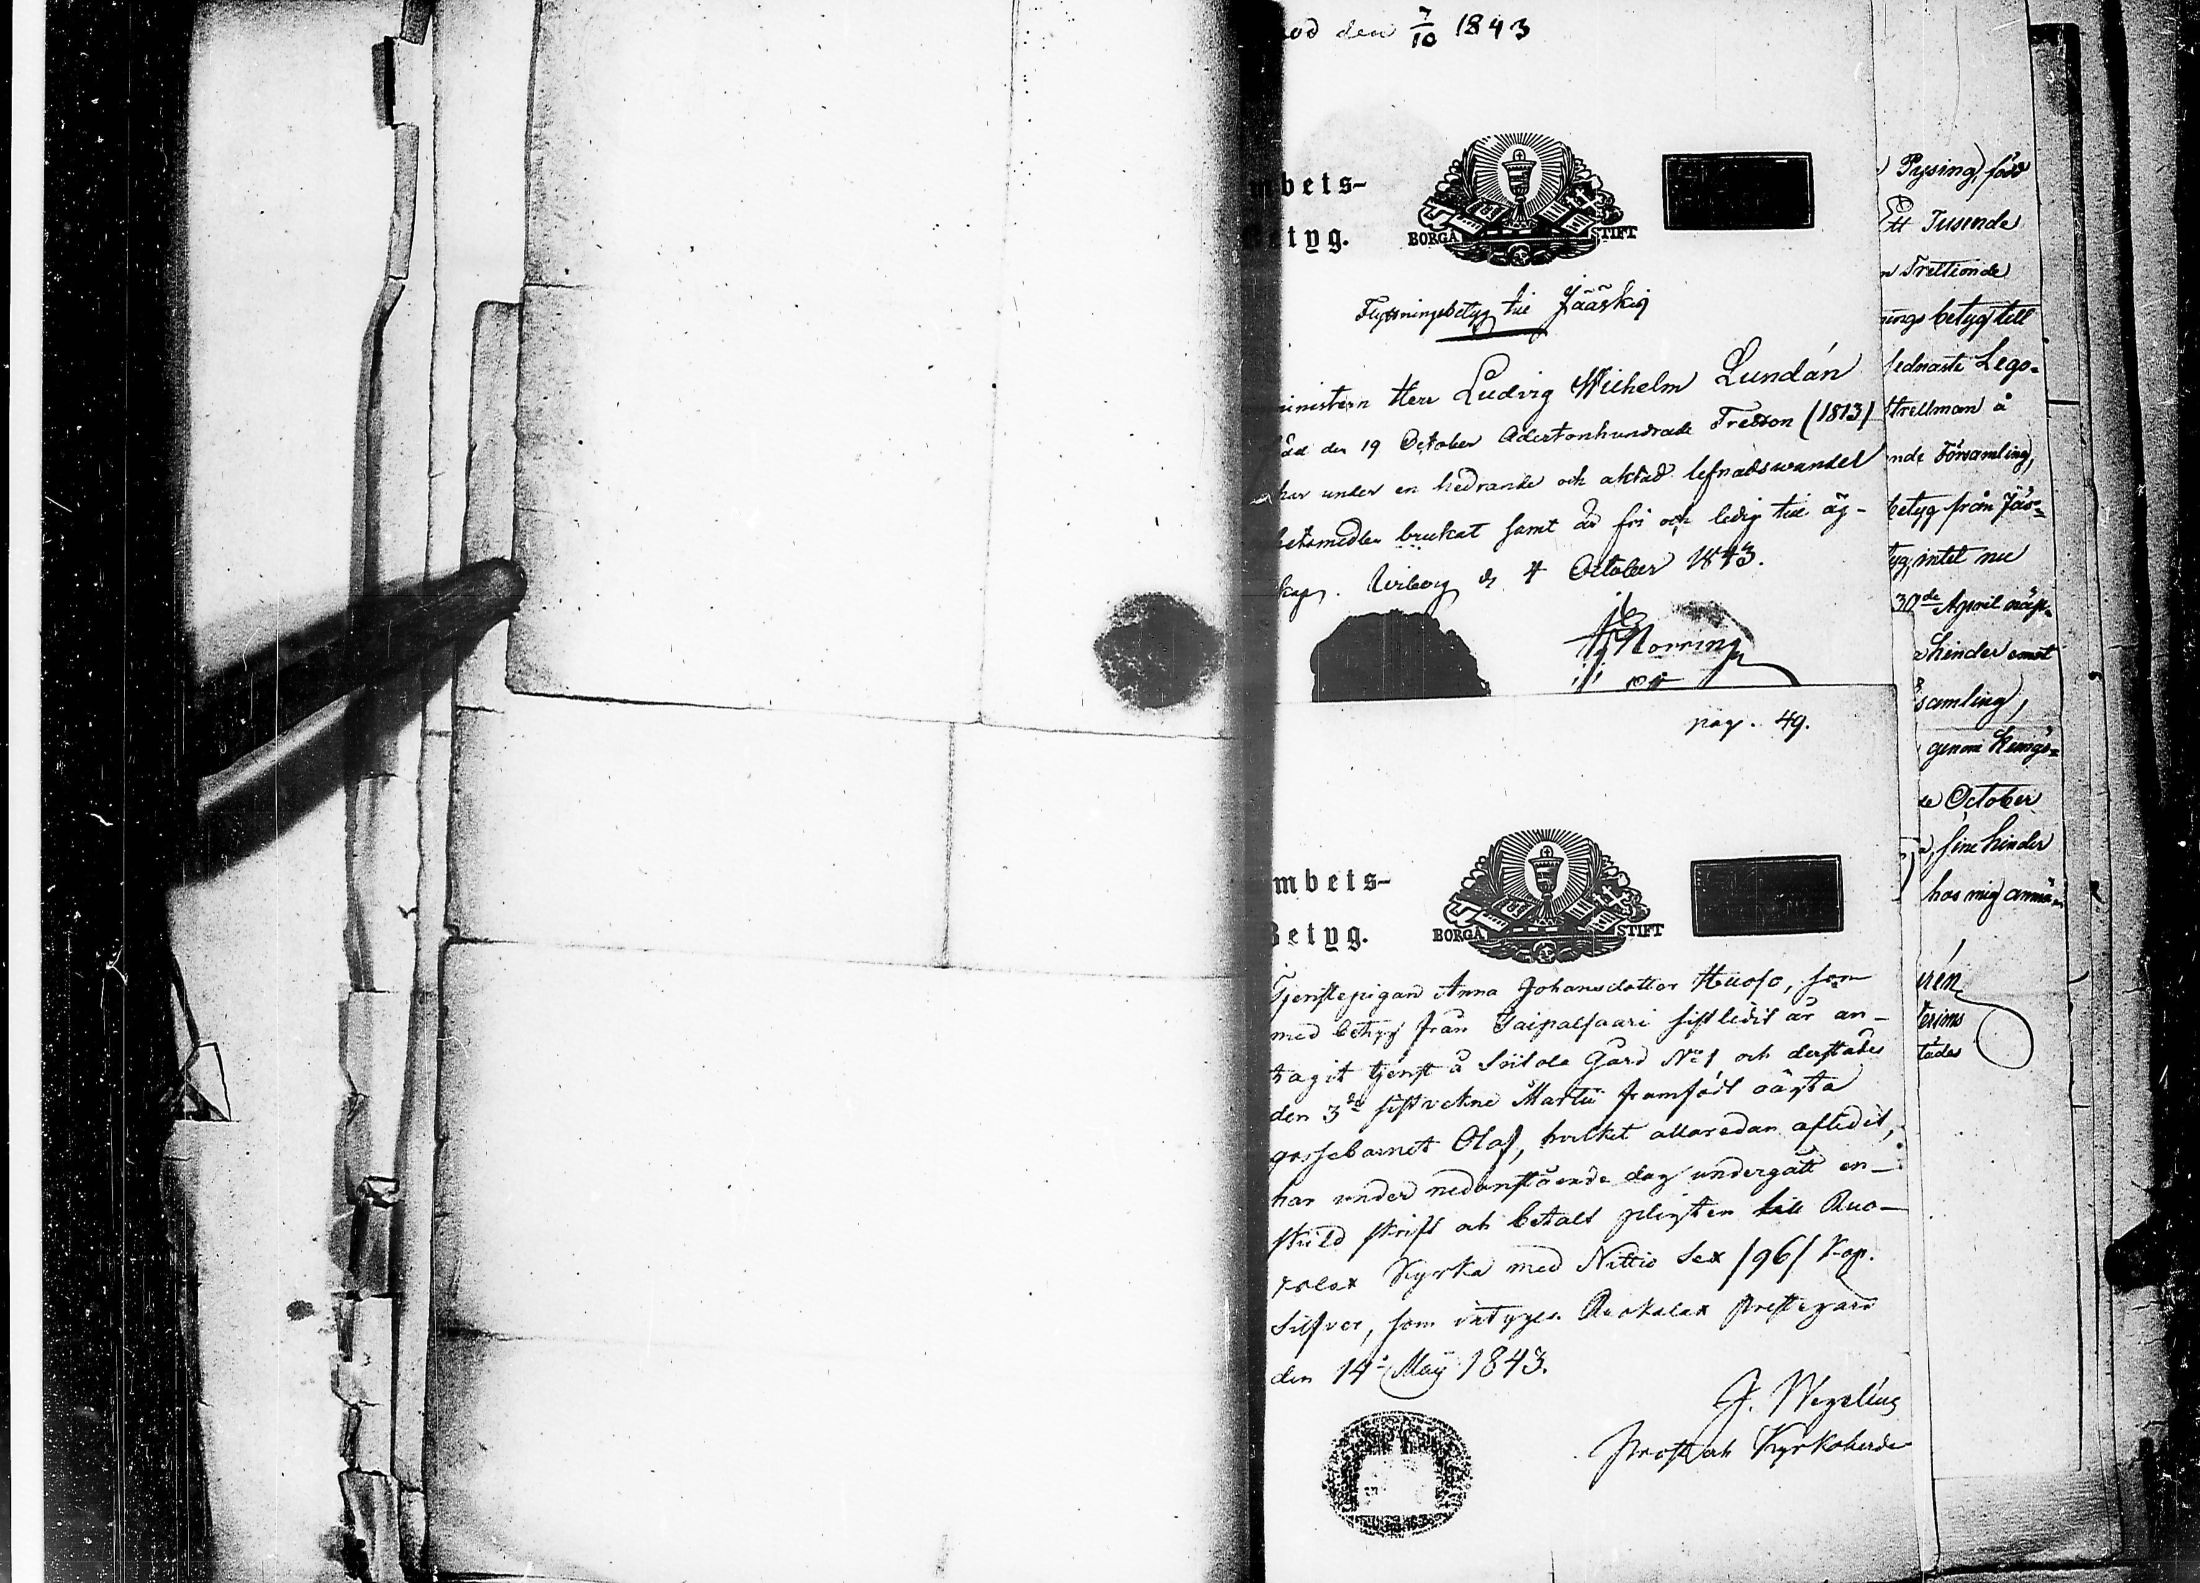 den 7/10 1843
mbets-
Betyg.
BORGÅ STIFT
Flyttningsbetyg till Jääskis
ministern Herr Ludvig Wilhelm Lundán
född den 19 October Adertonhundrade Tretton (1813)
har under en hedrande och aktad lefnadswandel
brukat samt är fri och ledig till äg-
skap. Wiborg d. 4 October 1843.
pag. 49.
mbets-
Betyg.
BORGÅ STIFT
Tjenstepigan Anna Johansdotter Huoso, som
med betyg från Taipalsaari sistledit år an-
tagit tjenst å Siitola Gård No 1 och derstädes
den 3de sistvekne Martii framfödt oäkta
gossebarnet Olaf, hvilket allaredan aflidit,
har under nedanstående dag undergått en-
skild skrift och betalt pligten till Ruo-
kolax Kyrka med Nittio Sex /96/ Kop.
Silfver, som intygas. Ruokolax Prestegård
den 14 Maij 1843.
J. Wegelius
Prost och Kyrkoherde
Pysing, född
Ett Tusende
Trettionde
nings betyg till
sednaste Lego-
Strellman å
nde Församling,
betyg från Jäs-
intet nu
30de April
hinder emot
samling,
genom Kunge-
October
sine hinder
hos mig anmä-
rén
terims
tades